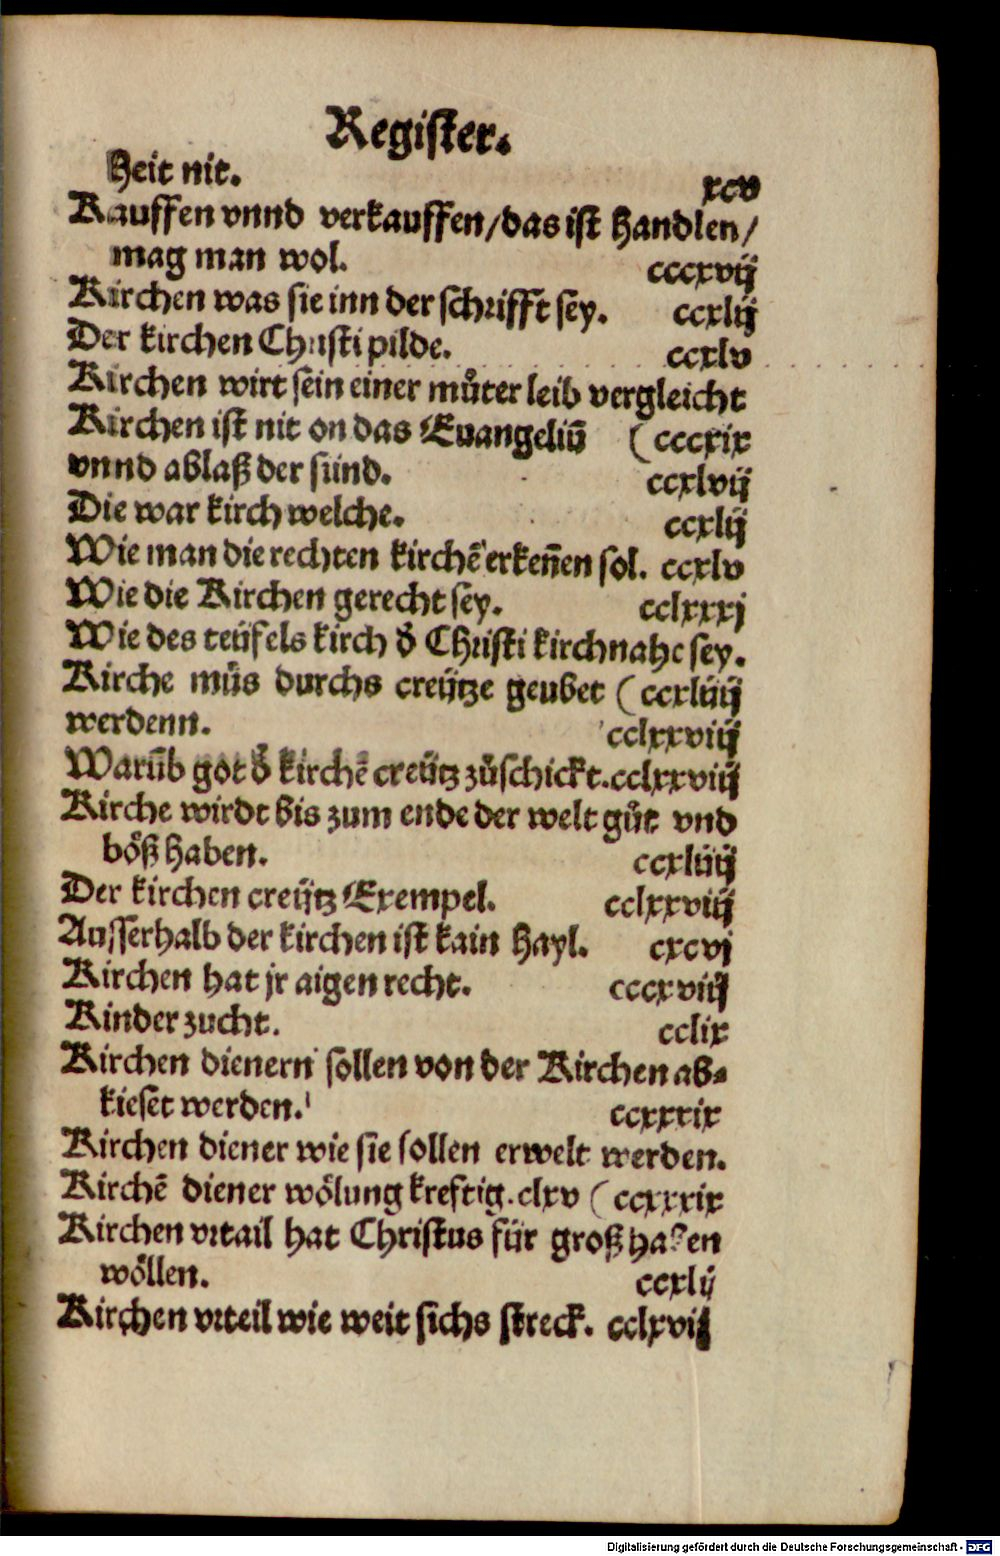 Register.
Heit nit. xcv
Kauffen vnnd verkauffen/das ist Handlen/
mag man wol. cccxvij
Kirchen was sie inn der schrifft sey. ccxlij
Der kirchen Christi pilde. ccxlv
Kirchen wirt sein einer můter leib vergleicht
Kirchen ist nit on das Euangeliū (cccxix
vnnd ablaß der sünd. ccxlvij
Die war kirch welche. ccxlij
Wie man die rechten kirchē erkeñen sol. ccxlv
Wie die Kirchen gerecht sey. cclxxxj
Wie des teüfels kirch d̕ Christi kirch nahe sey.
Kirche můs durchs creütze geubet (ccxliiij
werdenn. cclxxviij
Warūb got d̕ kirchē creütz zůschickt. cclxxviij
Kirche wirdt bis zum ende der welt gůt vnd
böß haben. ccxliiij
Der kirchen creütz Exempel. cclxxviij
Ausserhalb der kirchen ist kain Hayl. cxcvj
Kirchen hat jr aigen recht. cccxviij
Kinder zucht. cclix
Kirchen dienern sollen von der Kirchen ab-
kieset werden. ccxxxix
Kirchen diener wie sie sollen erwelt werden.
Kirchē diener wölung kreftig. clxv (ccxxxix
Kirchen vrtail hat Christus für groß haben
wöllen. ccxlij
Kirchen vrteil wie weit sichs streck. cclxvij
Digitalisierung gefördert durch die Deutsche Forschungsgemeinschaft - DFG